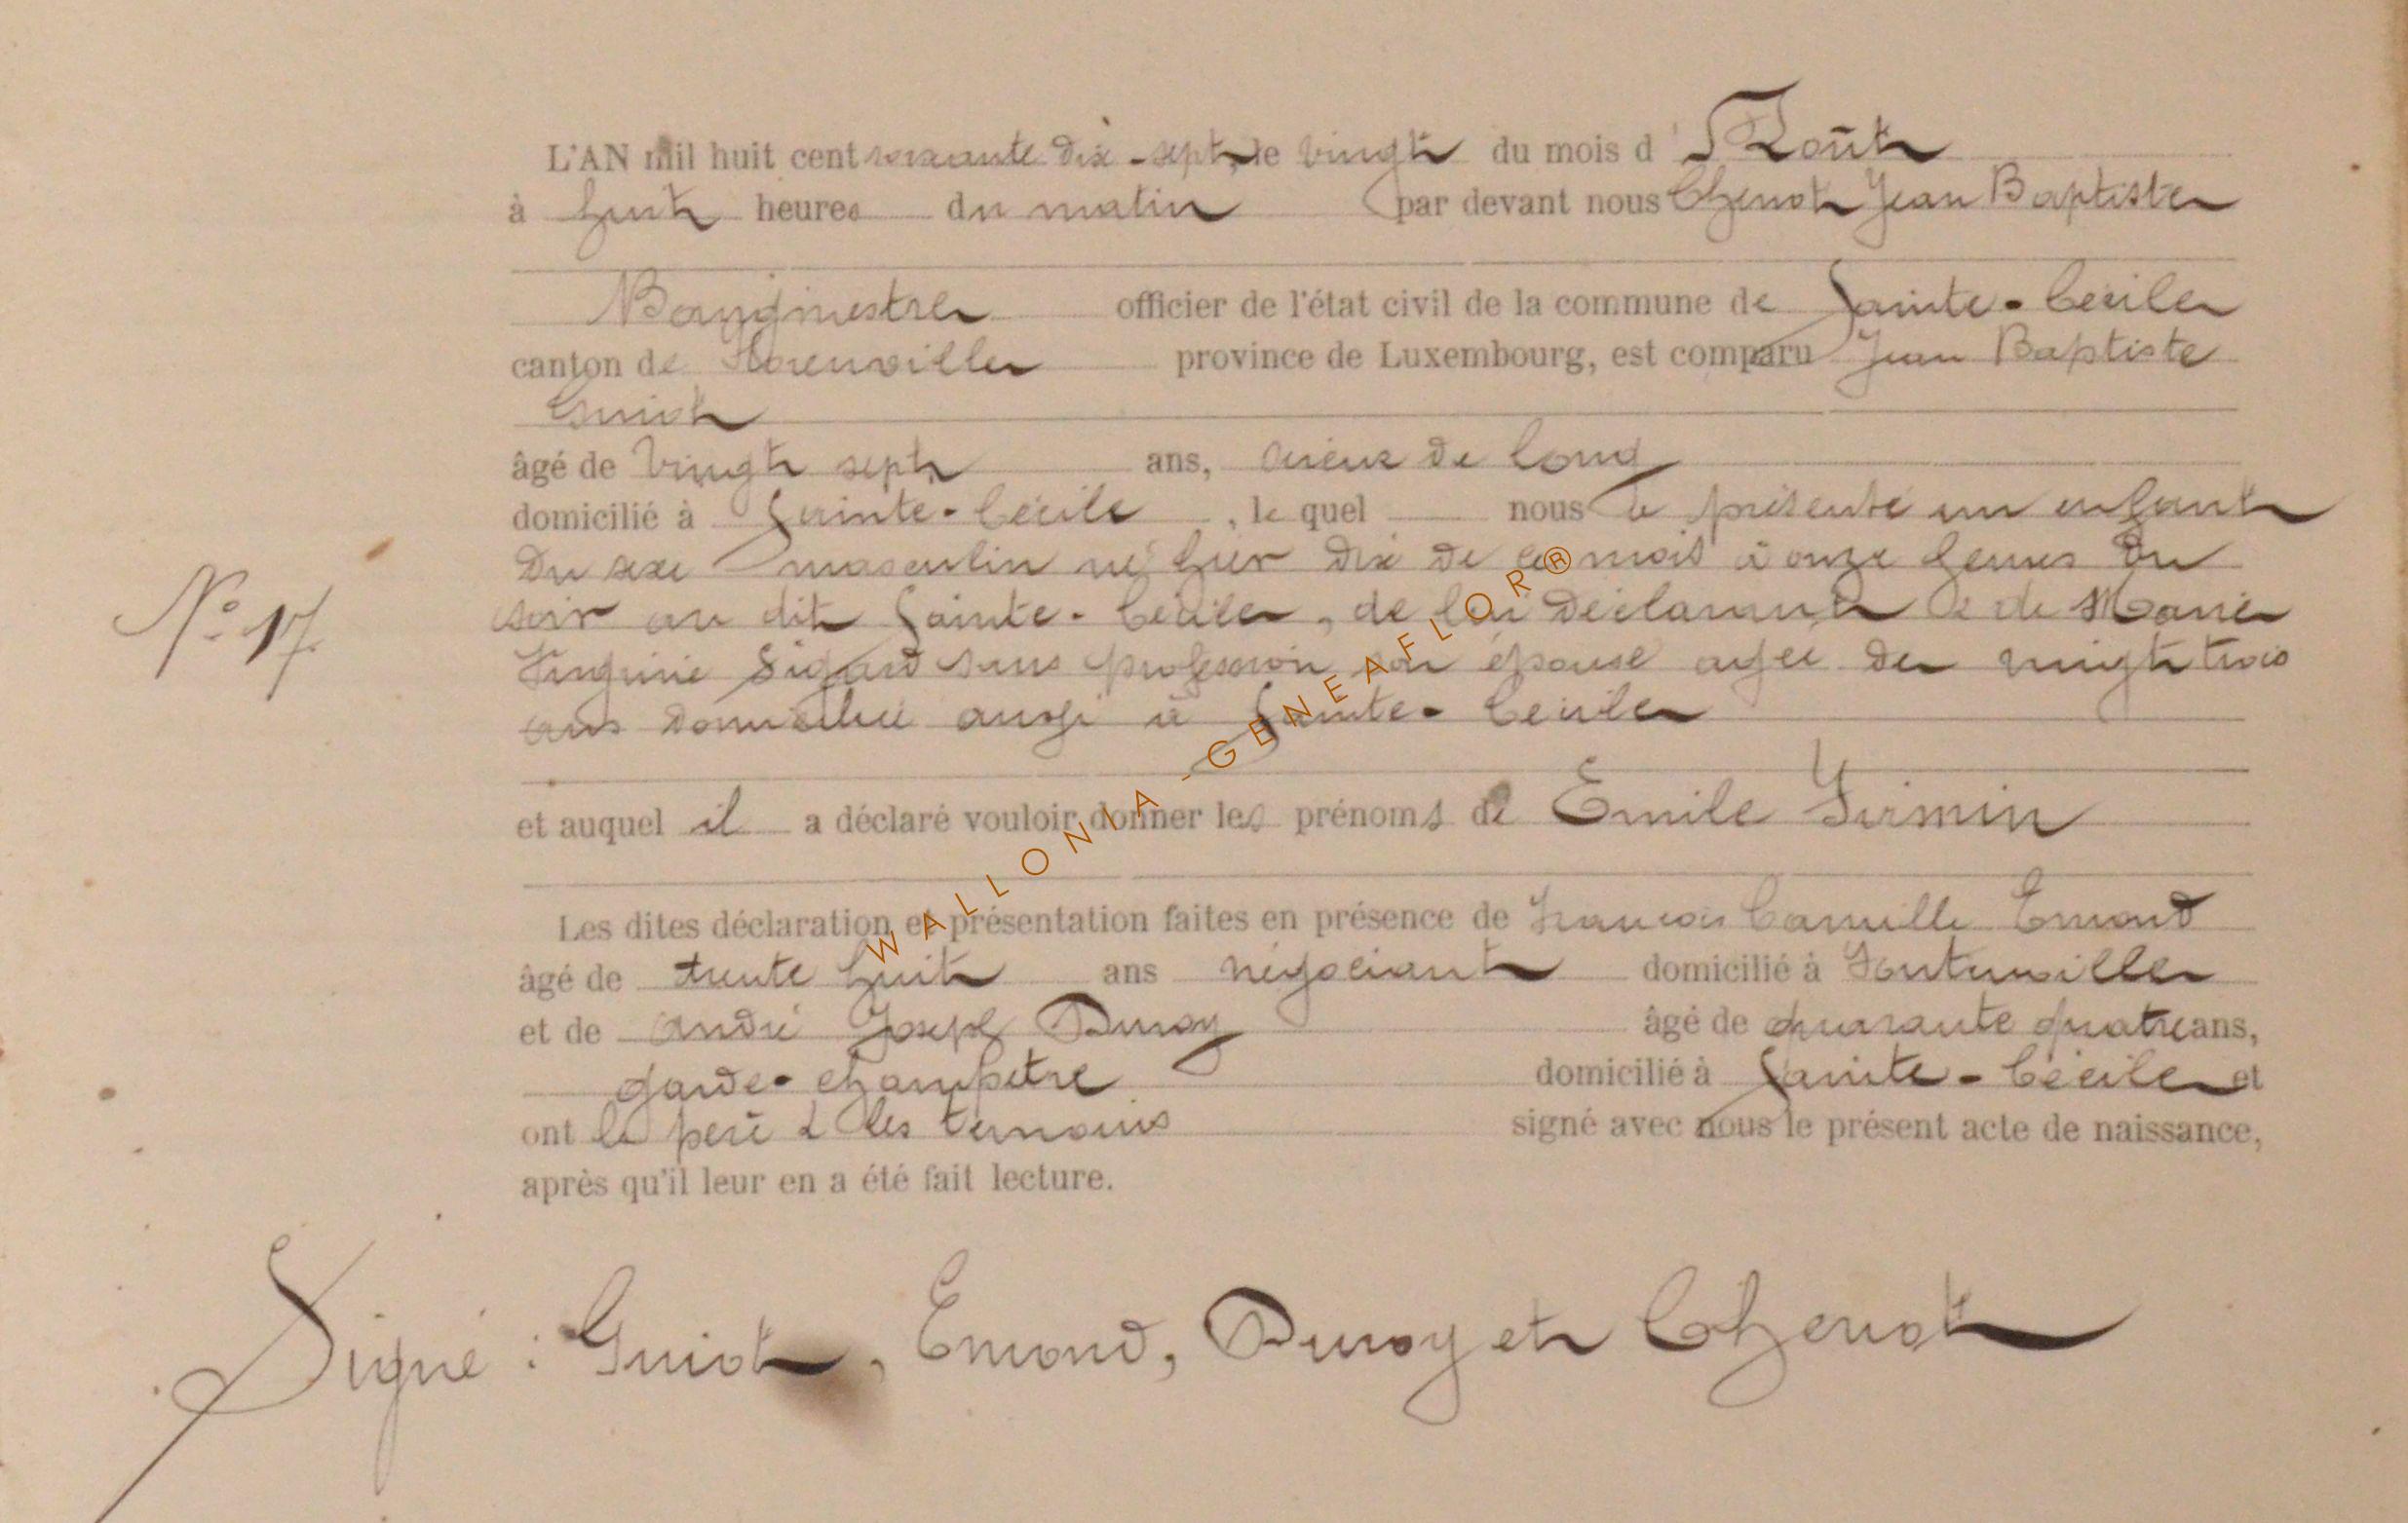 L'AN mil huit cent soixante dix-sept, le vingt du mois d'Août
à huit heures du matin par devant nous Chenot Jean Baptiste
Bourgmestre officier de l'état civil de la commune de Sainte-Cécile
canton de Florenville province de Luxembourg, est comparu Jean Baptiste
Guiot
âgé de vingt sept ans, scieur de long
domicilié à Sainte-Cécile, le quel nous a présenté un enfant
du sexe masculin né hier dix de ce mois à onze heures du
soir au dit Sainte-Cécile, de lui déclarant & de Marie
Sigard sans profession son épouse agée de vingt trois
ans domiciliée aussi à Sainte-Cécile
No 17.
et auquel il a déclaré vouloir donner les prénoms de Emile Firmin
Les dites déclaration et présentation faites en présence de François Camille Emond
âgé de trente huit ans négociant domicilié à
et de André Joseph Duroy âgé de quarante quatre ans,
garde-champêtre domicilié à Sainte-Cécile et
ont le père & les temoins signé avec nous le présent acte de naissance,
après qu'il leur en a été fait lecture.
Signé : Guiot, Emond, Duroy et Chenot
WALLONIA-GENEAFLOR®